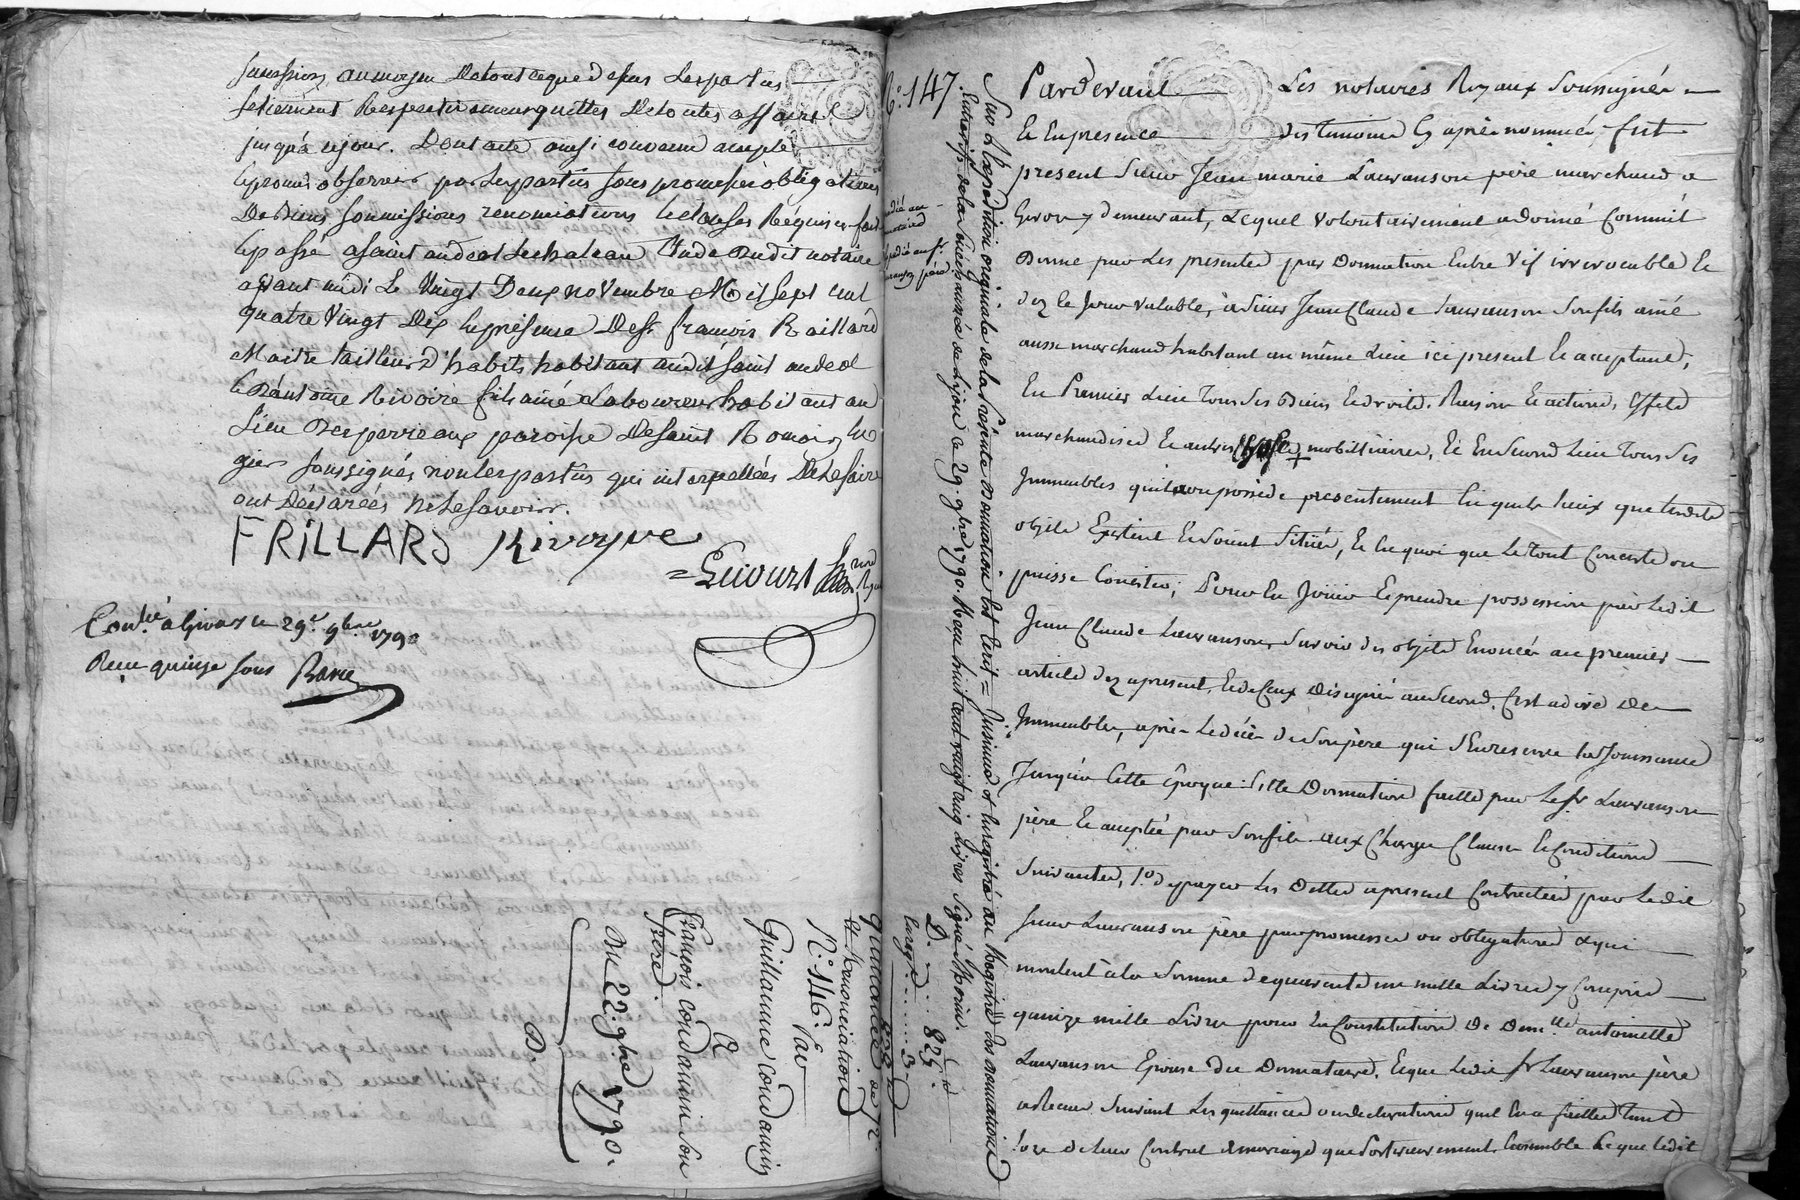 succession, au moyen de tout ce que dessus les parties
se tiennent respectivement quittes de toutes affaires
jusqu'à ce jour. Dont acte ainsi convenu accepté
et promis observer par les parties sous promesses obligations
de biens soumissions renonciations et clauses Requises fait
et passé a saint andeol le chateau Etude dudit notaire
avant midi Le Vingt Deux novembre Mil sept cent
quatre Vingt Dix En presence De sr. francois Raillard
Maitre tailleur d'habits habitant audit saint andeol
et D'antoine Rivoire fils ainé Laboureur habitant au
Lieu Des perreaux paroisse De saint Romain en
gier soussignés, non les parties qui interpellées De le faire
ont Déclarées Ne le savoir.
FRILLARD Rivoyre
Conlé. a Givors le 29e. 9bre 1790
Reçu quinze sous
Du 22. 9bre 1790.
D.
Francois Condamin son
frère.
Et
Guillaume Condamin
N.º 146. Par
et Renonciation
quittance
D. . . . 825.
N.º 147
Sur L'Expedition originale de la Présente Donnation est Ecrit = Insinué et Enregistré au Registre des donnations
Entrevifs de la Sénéchaussée de Lyon ce 29. 9bre 1790. Reçu huit cent vingt cinq Livres Signé Morin
Pardevant Les notaires Royaux Soussignés
Et En presence des temoins Cy après nommés, fut
present Sieur Jean marie Lauranson père marchand a
Givors y demeurant, Lequel volontairement a donné Comme il
Donne par Les presentes par Donnation Entre Vif irrevocable Et
dez ce Jour valable, a Sieur Jean Claude Lauranson Son fils ainé
aussi marchand habitant au même Lieu ici present Et acceptant,
En Premier Lieu Tous Ses Biens Et droits, Raisons Et actions, Effets
marchandises Et autres mobilliaires, Et En Second Lieu Tous Ses
Immeubles qu'il possède presentement En quels lieux que lesdits
objets Existent Et Soient Situés, Et En quoi que Le tout Consiste ou
puisse Consister; Pour En Jouir Et prendre possession par Ledit
Jean Claude Lauranson Savoir des objets Enoncés au premier
article dez apresent, Et de Ceux Désignés au Second, C'est a dire des
Immeubles, après Le décès de Son père qui S'En reserve la Jouissance
Jusqu'à Cette époque: Cette Donnation faitte par Le Sr Lauranson
père Et acceptée par Son fils aux Charges Clauses Et Conditions
Suivantes, 1.º de payer Les Dettes apresent Contractées par Ledit
Sieur Lauranson père par promesses ou obligations Lesqui
montent à la Somme de quarante un mille Livres y Compris
quinze mille Livres pour La Constitution De Demlle antoinette
Lauranson Epouse du Donnataire, Et que Ledit Sr Lauranson père
a Reçue Suivant Les quittances ou declarations quil En a faittes Tant
Lors de Leur Contrat de mariage que postérieurement, Ensemble Ce que Ledit